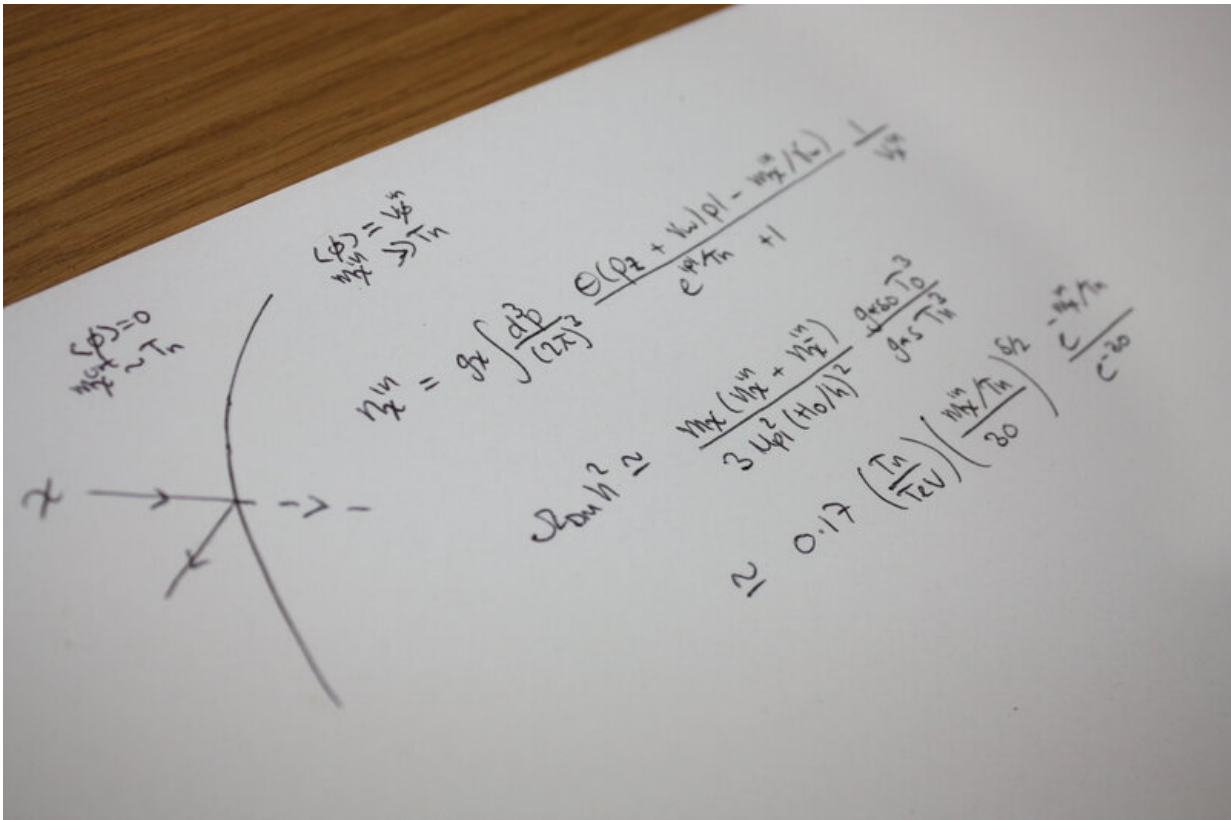 ⟨φ⟩=0
m_χ ~ T_n
⟨φ⟩ = v_φ^in
m_χ^in ≫ T_n
χ
n_χ^in = g_χ ∫ d³p/(2π)³ Θ(p_z + v_w|p| − m_χ^in/γ_w)/(e^{|p|/T_n} + 1) 1/v_χ^in
Ω_DM h² ≃ m_χ(n_χ^in + n_χ̄^in)/(3 M_Pl² (H_0/h)²) g_{*s0} T_0³/(g_{*s} T_n³)
≃ 0.17 (T_n/TeV) ((m_χ^in/T_n)/30)^{5/2} e^{-m_χ^in/T_n}/e^{-30}